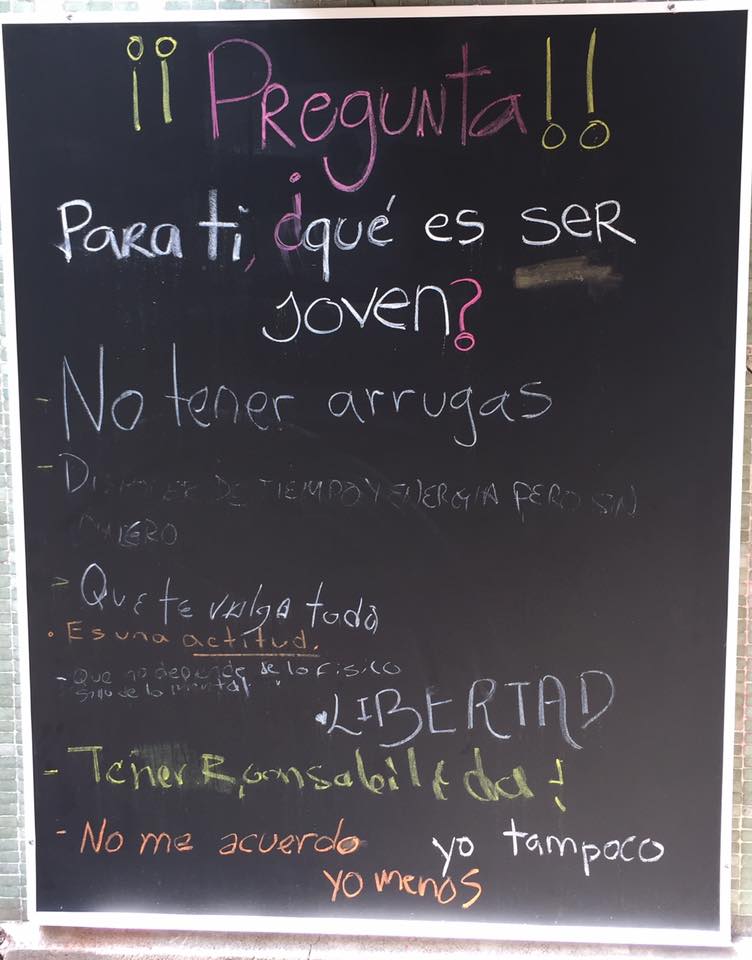 ¡¡Pregunta!!
Para ti, ¿qué es ser
joven?
- No tener arrugas
- DISPONER DE TIEMPO Y ENERGIA PERO SIN
DINERO
- Que te valga todo
• Es una actitud.
- Que no depende de lo físico
sino de lo mental
• LIBERTAD
- Tener Rponsabilidad!
- No me acuerdo yo tampoco
yo menos